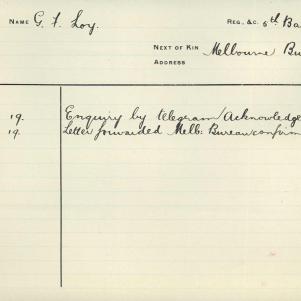 NAME G. F. Loy. REG. &C. 6th Ba
NEXT OF KIN Melbourne Bu
ADDRESS
19. Enquiry by telegram/Acknowledge
19. Letter forwarded Melb: Bureau confirm